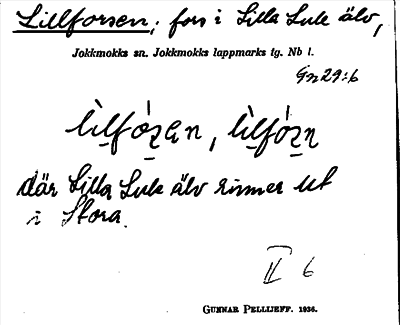 Lillforsen; fors i Lilla Lule älv,
Jokkmokks sn. Jokkmokks lappmarks tg. Nb l.
Gn29:6
där Lilla Lule älv rinner ut
i Stora.
II 6
GUNNAR PELLIJEFF. 1936.